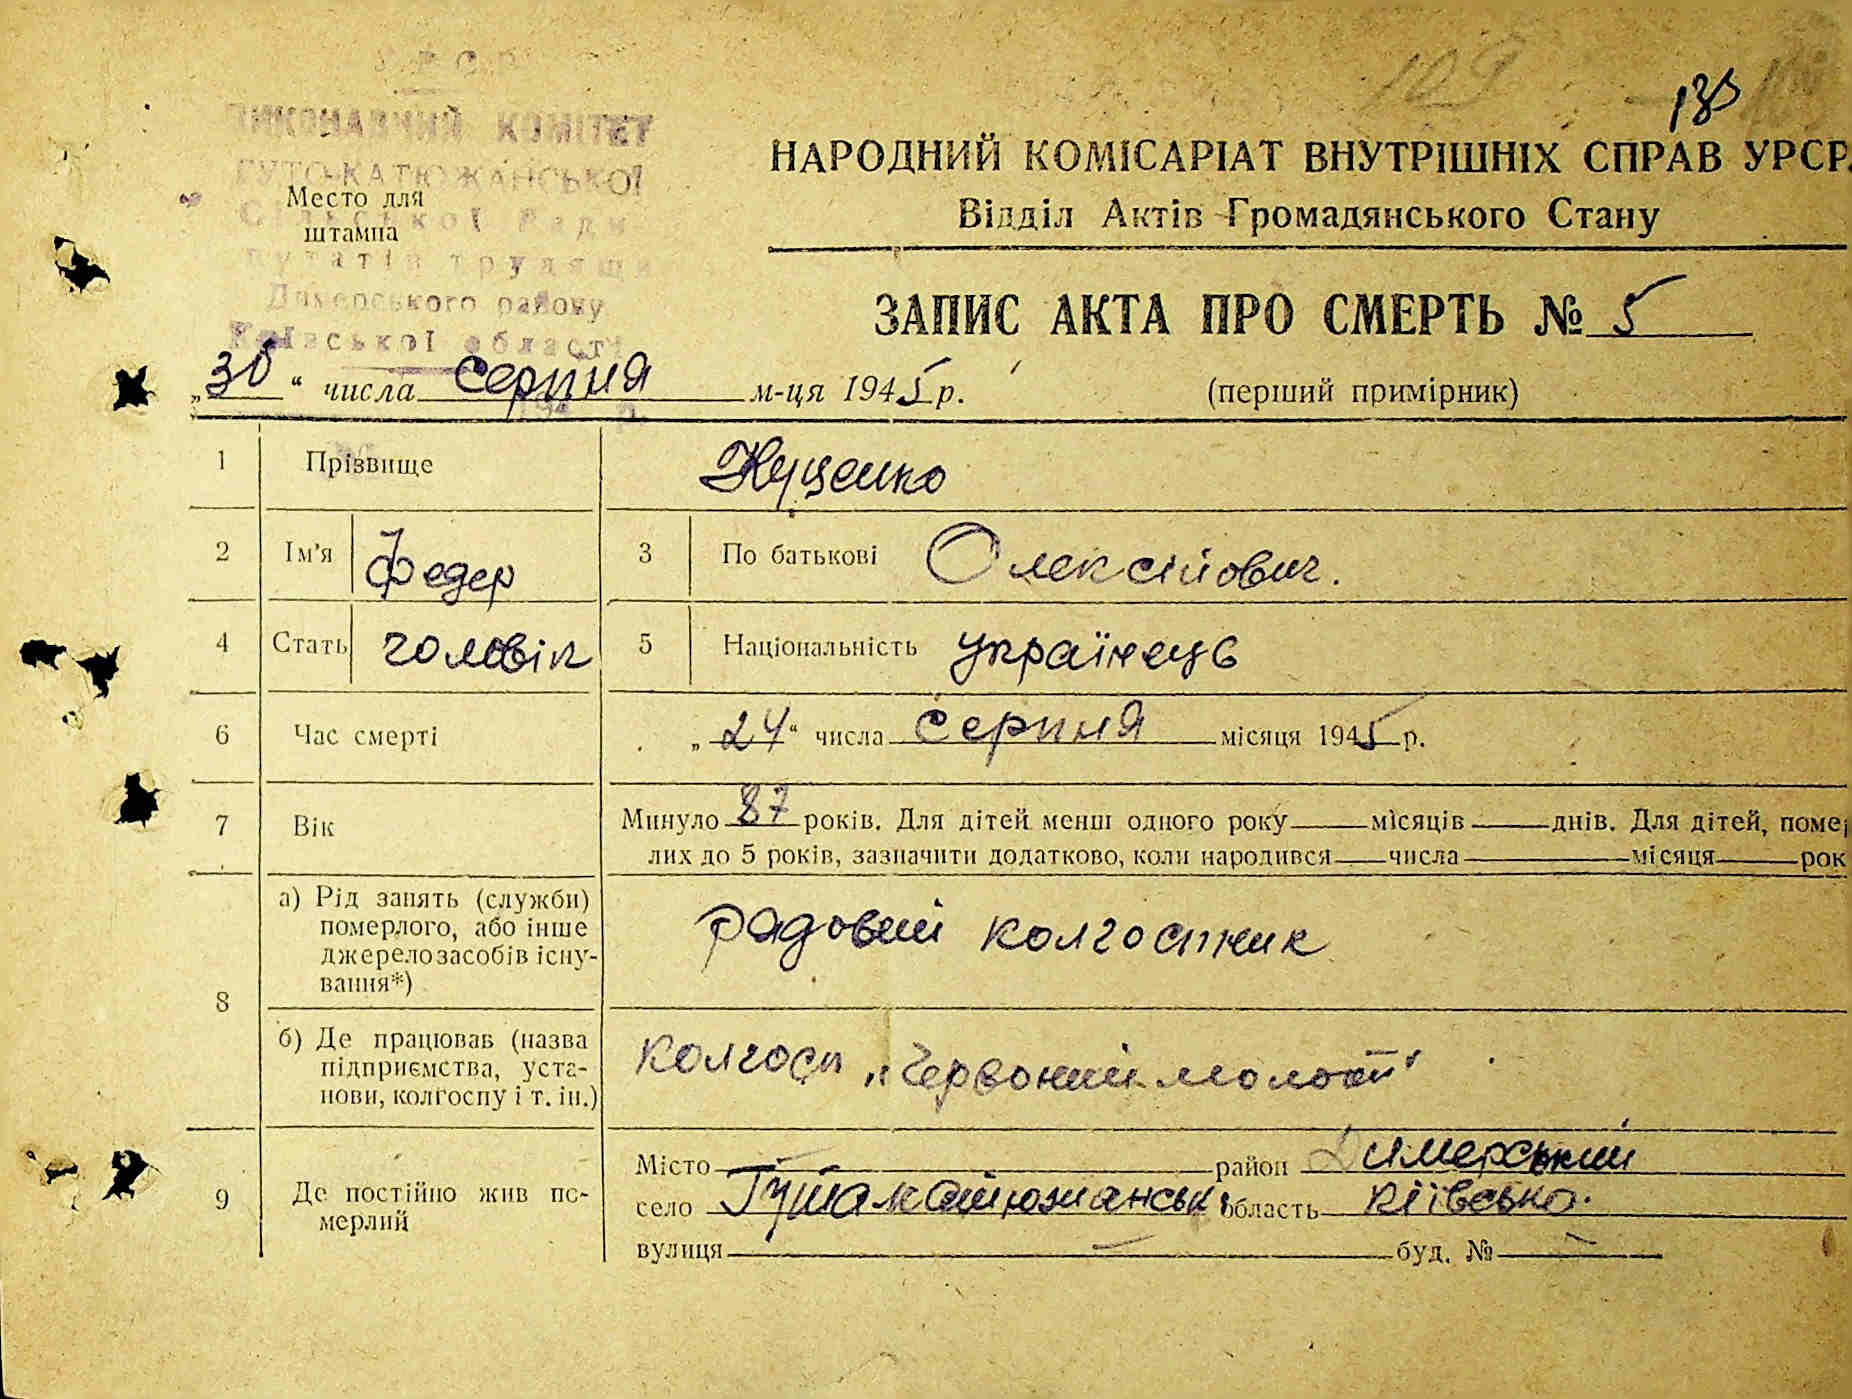 УРСР
ВИКОНАВЧИЙ КОМІТЕТ
ГУТО-КАТЮЖАНСЬКОЇ
Сільської Ради
путатів трудящ
Димерського району
Київської області
Место для
штампа
109
135
НАРОДНИЙ КОМІСАРІАТ ВНУТРІШНІХ СПРАВ УРСР.
Відділ Актів Громадянського Стану
ЗАПИС АКТА ПРО СМЕРТЬ № 5
„30“ числа серпня м-ця 1945 р.
(перший примірник)
1 Прізвище Куценко
2 Ім'я Федер 3 По батькові Олексійович.
4 Стать чоловік 5 Національність українець
6 Час смерті „24“ числа серпня місяця 1945 р.
7 Вік Минуло 87 років. Для дітей менш одного року місяців днів. Для дітей, помер
лих до 5 років, зазначити додатково, коли народився числа місяця рок
8 а) Рід занять (служби)
померлого, або інше
джерело засобів існу-
вання*)
рядовий колгостник
б) Де працював (назва
підприємства, уста-
нови, колгоспу і т. ін.)
колгосп „Червоний молот"
9 Де постійно жив по-
мерлий
Місто — район Димерський
село Гута Катюжанськ область київська.
вулиця — буд. № —